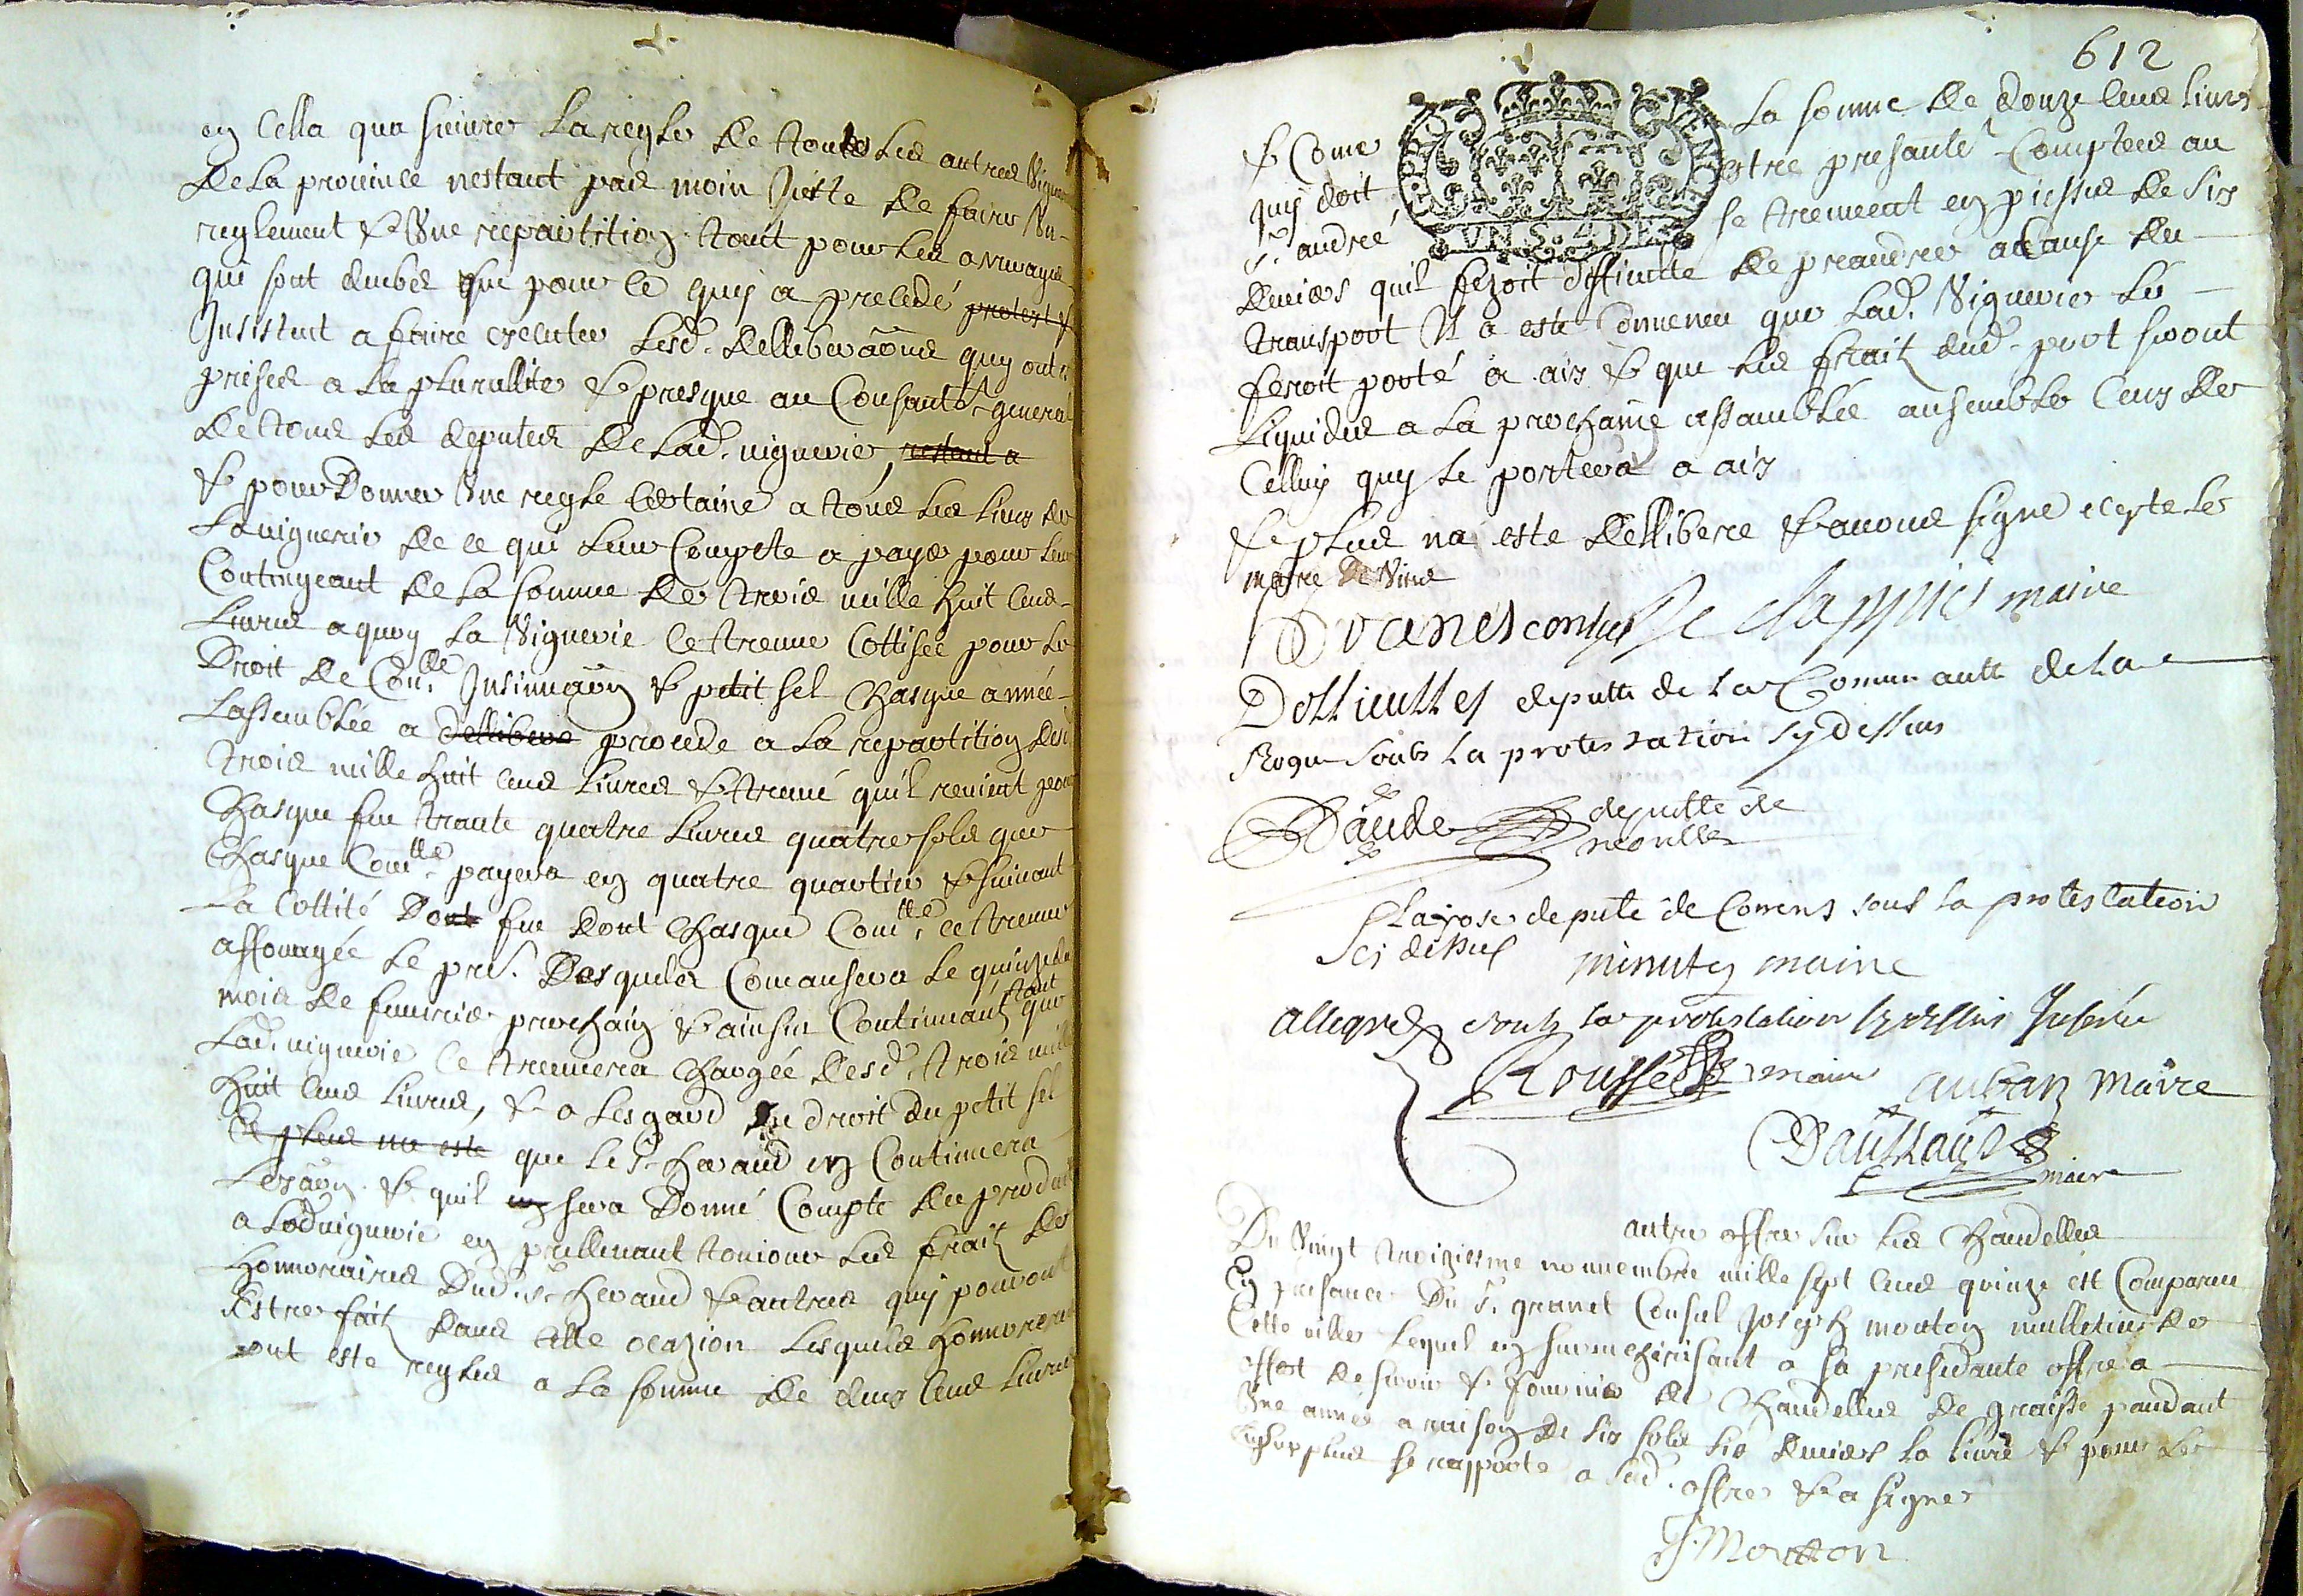 en cella que suivre la regle de toutes les autres vigue
de la province nestant pas moin juste de faire un
reglement & une repartition tant pour les arrerages
qui sont deubes que pour ce quy a precedé protest &
Insistent a faire executer lesd. delliberaõns quy ont e
prises a la plurallite & presque au consante general
de tous les deputes de lad. viguerie restant a
& pour donner une regle certaine a tous les lieus de
la viguerie de ce qui leur compete a payer pour leur
contingeant de la somme de trois mille huit cens
livres a quoy la viguerie ce treuve cottisée pour le
droit de con.lle Insinuaõn & petit sel chasque année
lassemblée a dellibere procede a la repartition desd
trois mille huit cens livres & treuvé quil revient pour
chasque fue trante quatre livres quatre sols que
chasque com.te payera en quatre quartier & suivant
la cottité dont fue dont chasque com.te ce treuve
affouagée le pres. desquels comansera le quinze du
mois de fevrier prochain & ainsin continuant tant que
lad. viguerie ce treuvera chargée desd. trois mille
huit cens livres, & a lesgard du droit du petit sel
Et plus na este que le sr heraud en continuera
lexaõn & quil en sera donné compte du produit
a lad viguerie en prellevant toujour les fraiz des
honoraires dud. sr. heraud & autres quy pouront
estre faitz dans celle ocazion lesquels honnoreres
ont este regles a la somme de deus cens livres
612
& come la somme de douze cens livres
quy doit estre presanté comptees au
sr. andreé se treuvent en piesses de sis
deniers quil fezoit difficulte de prandre a cause du
transport Il a este convenu que lad. viguerie les
feroit porté a aix & que les fraitz dud. port seront
liquides a la prochaine assamblée ansemble ceus de
celluy quy le portera a aix
& plus na este dellibere & avons signe exepte le
maire de vins
D vanel consul De clappiés maire
Dollieulles deputte de la Commanutte de la
Roque soubs la protestation sy dessus
Daude deputte de
neoulles
Larose depute de Correns sous la protestation
sci dessus minuty maire
allegre soubz la protestation sy dessus Inserée
Rousse maire auban maire
Dauthaud
maire
autre offre sur les chandelles
Du vingt troizieme novembre mille sept cens quinze est comparu
En presance du sr. granet consul joseph mouton mulletier de
cette ville lequel en surenchérissant a sa presedante offre a
offert de servir & fournir de chandelles de graisse pandant
une année a raison de six sols six deniers la livre & pour le
surplus se rapporte a sad. offre & a signe
J. Mouton